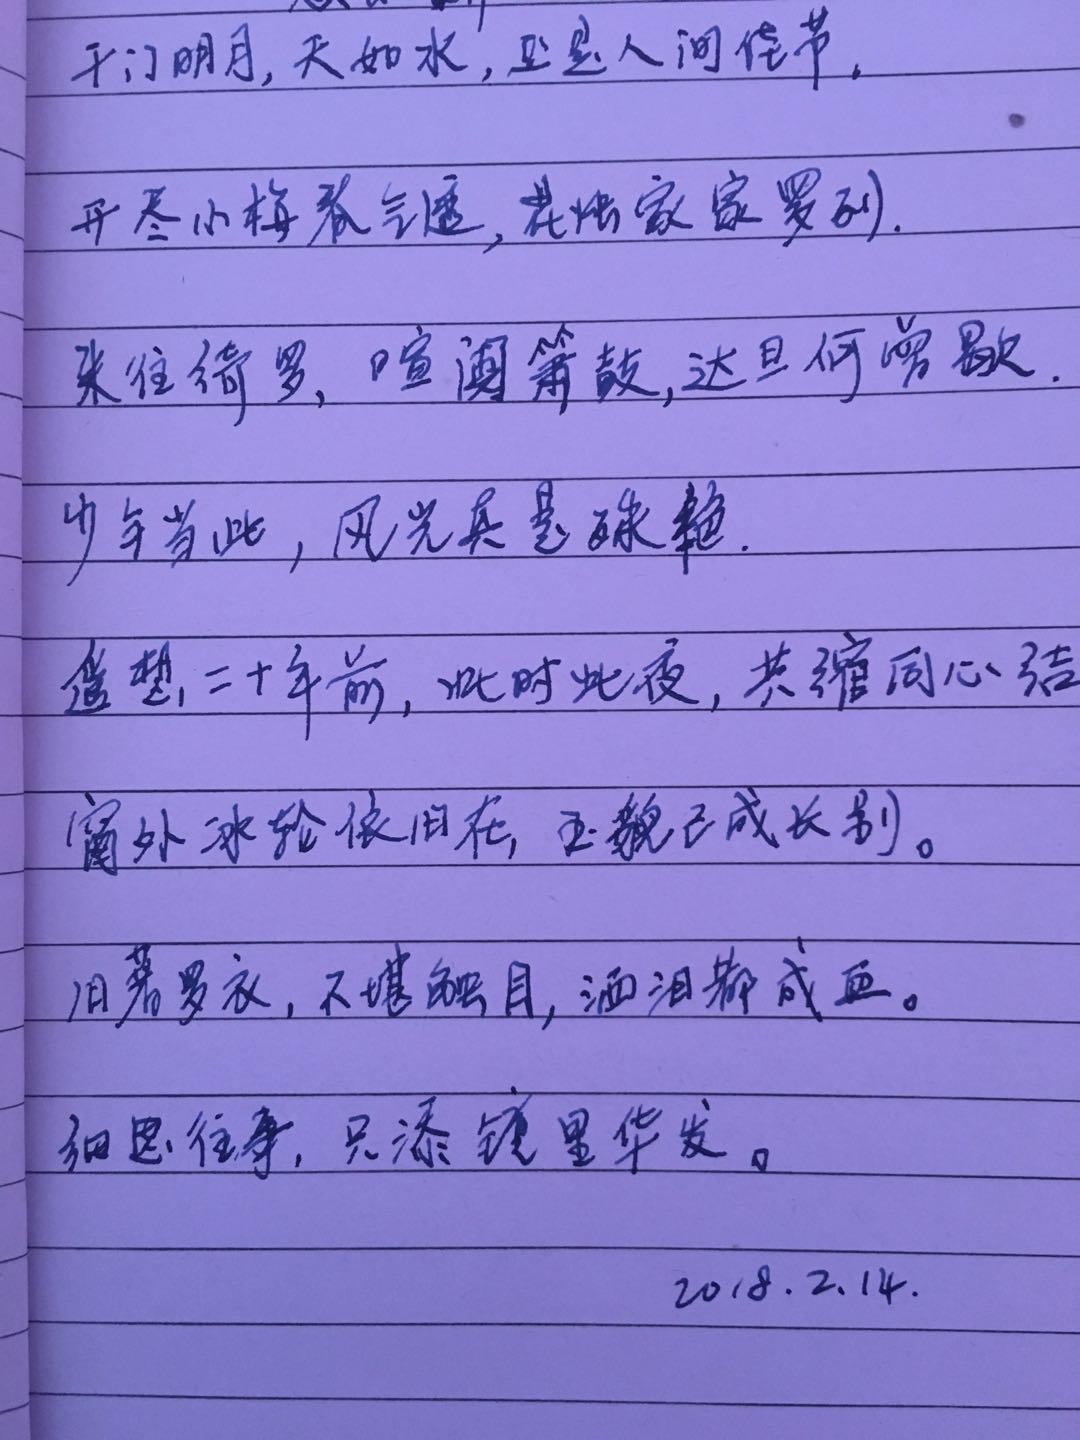 千门明月，天如水，正是人间佳节，
开尽小梅春气透，花烛家家罗列．
来往绮罗，喧阗箫鼓，达旦何曾歇．
少年当此，风光真是殊艳．
遥想，二十年前，此时此夜，共绾同心结
窗外冰轮依旧在，玉貌已成长别。
旧着罗衣，不堪触目，洒泪都成血。
细思往事，只添镜里华发。
2018.2.14.